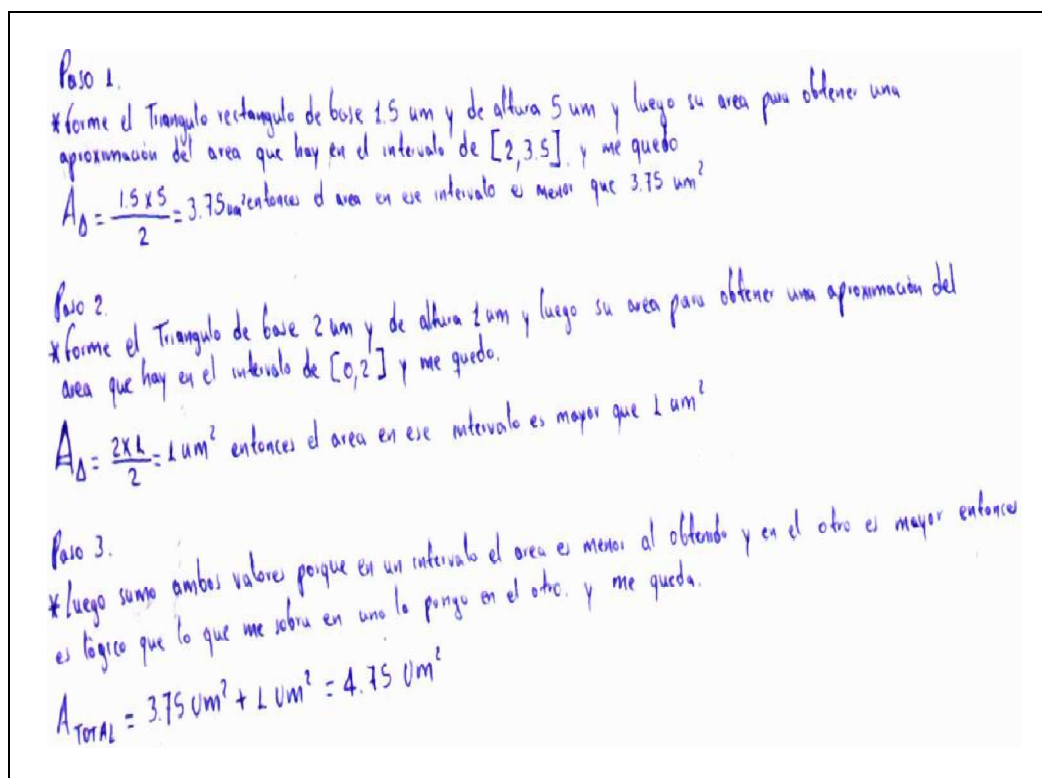 Paso 1.
* Forme el Triangulo rectangulo de base 1.5 um y de altura 5 um y luego su area para obtener una
aproximación del area que hay en el intervalo de [2,3.5] y me quedo
A△ = 1.5 x 5 / 2 = 3.75 um² entonces el area en ese intervalo es menor que 3.75 um²
Paso 2.
* Forme el Triangulo de base 2 um y de altura 1 um y luego su area para obtener una aproximación del
area que hay en el intervalo de [0,2] y me quedo.
A△ = 2 x 1 / 2 = 1 um² entonces el area en ese intervalo es mayor que 1 um²
Paso 3.
* Luego sumo ambos valores porque en un intervalo el area es menor al obtenido y en el otro es mayor entonces
es lògico que lo que me sobra en uno lo pongo en el otro. y me queda.
A TOTAL = 3.75 Um² + 1 Um² = 4.75 Um²